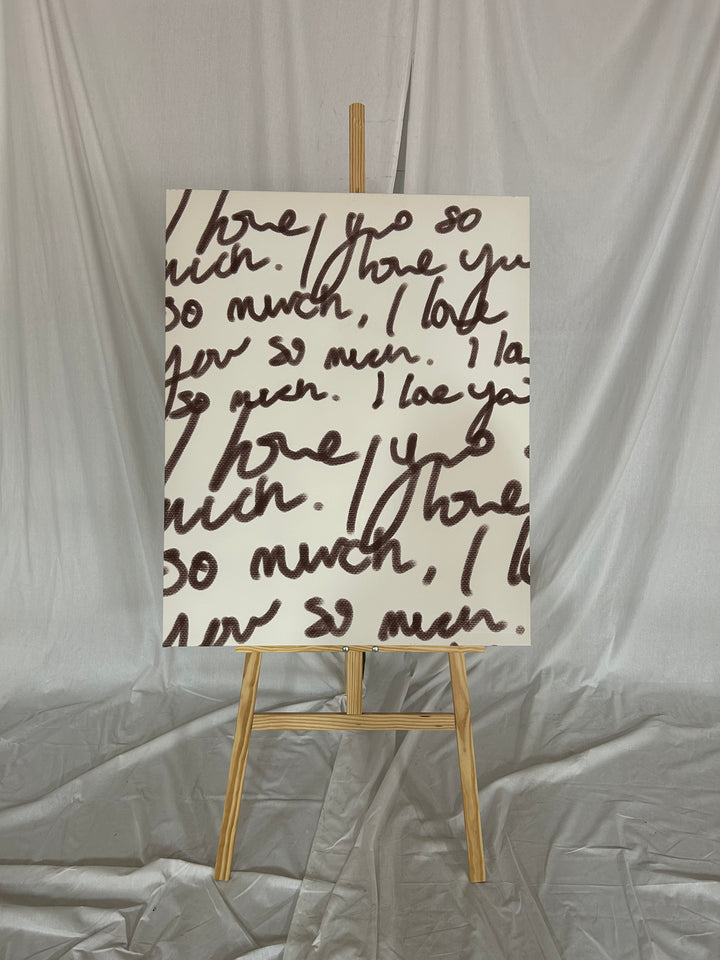 I love you so
much. I love you
so much, I love
you so much. I lo
so much. I love you
I love you
much. I love
so much, I lo
you so much.